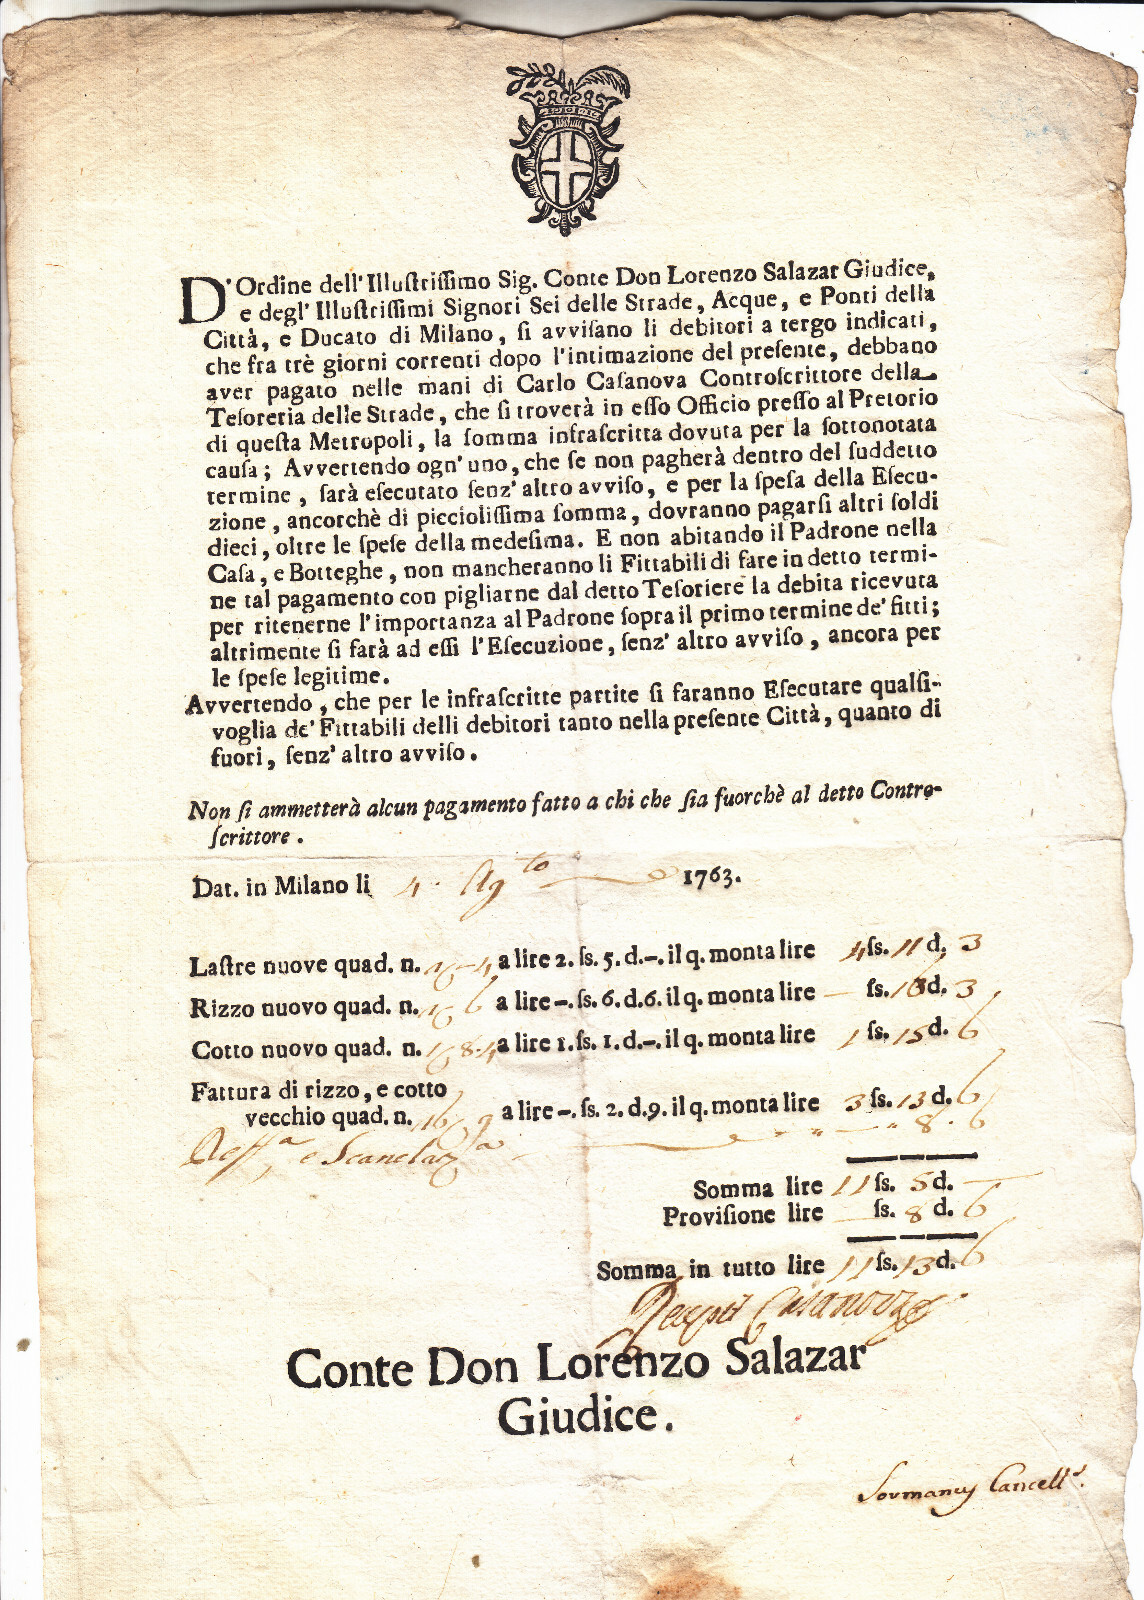 D'Ordine dell'Illuſtriſſimo Sig. Conte Don Lorenzo Salazar Giudice,
e degl'Illuſtriſſimi Signori Sei delle Strade, Acque, e Ponti della
Città, e Ducato di Milano, ſi avviſano li debitori a tergo indicati,
che fra trè giorni correnti dopo l'intimazione del preſente, debbano
aver pagato nelle mani di Carlo Caſanova Controſcrittore della
Teſoreria delle Strade, che ſi troverà in eſſo Officio preſſo al Pretorio
di queſta Metropoli, la ſomma infraſcritta dovuta per la ſottonotata
cauſa; Avvertendo ogn'uno, che ſe non pagherà dentro del ſuddetto
termine, ſarà eſecutato ſenz'altro avviſo, e per la ſpeſa della Eſecu-
zione, ancorchè di piccioliſſima ſomma, dovranno pagarſi altri ſoldi
dieci, oltre le ſpeſe della medeſima. E non abitando il Padrone nella
Caſa, e Botteghe, non mancheranno li Fittabili di fare in detto termi-
ne tal pagamento con pigliarne dal detto Teſoriere la debita ricevuta
per ritenerne l'importanza al Padrone ſopra il primo termine de' fitti;
altrimente ſi farà ad eſſi l'Eſecuzione, ſenz'altro avviſo, ancora per
le ſpeſe legitime.
Avvertendo, che per le infraſcritte partite ſi faranno Eſecutare qualſi-
voglia de' Fittabili delli debitori tanto nella preſente Città, quanto di
fuori, ſenz'altro avviſo.
Non ſi ammetterà alcun pagamento fatto a chi che ſia fuorchè al detto Contro-
ſcrittore.
Dat. in Milano li 4. Agto 1763.
Laſtre nuove quad. n. a lire 2. ſs. 5. d.-. il q. monta lire 4 ſs. 11 d. 3
Rizzo nuovo quad. n. a lire -. ſs. 6. d. 6. il q. monta lire — ſs. 16 d. 3
Cotto nuovo quad. n. a lire 1. ſs. 1. d.-. il q. monta lire 1 ſs. 15 d. 6
Fattura di rizzo, e cotto
vecchio quad. n. a lire -. ſs. 2. d. 9. il q. monta lire 3 ſs. 13 d. 6
e 8. 6
Somma lire 11 ſs. 5 d. —
Proviſione lire — ſs. 8 d. 6
Somma in tutto lire 11 ſs. 13 d. 6
Recepit Casanova
Conte Don Lorenzo Salazar
Giudice.
Sormanus Cancell.s